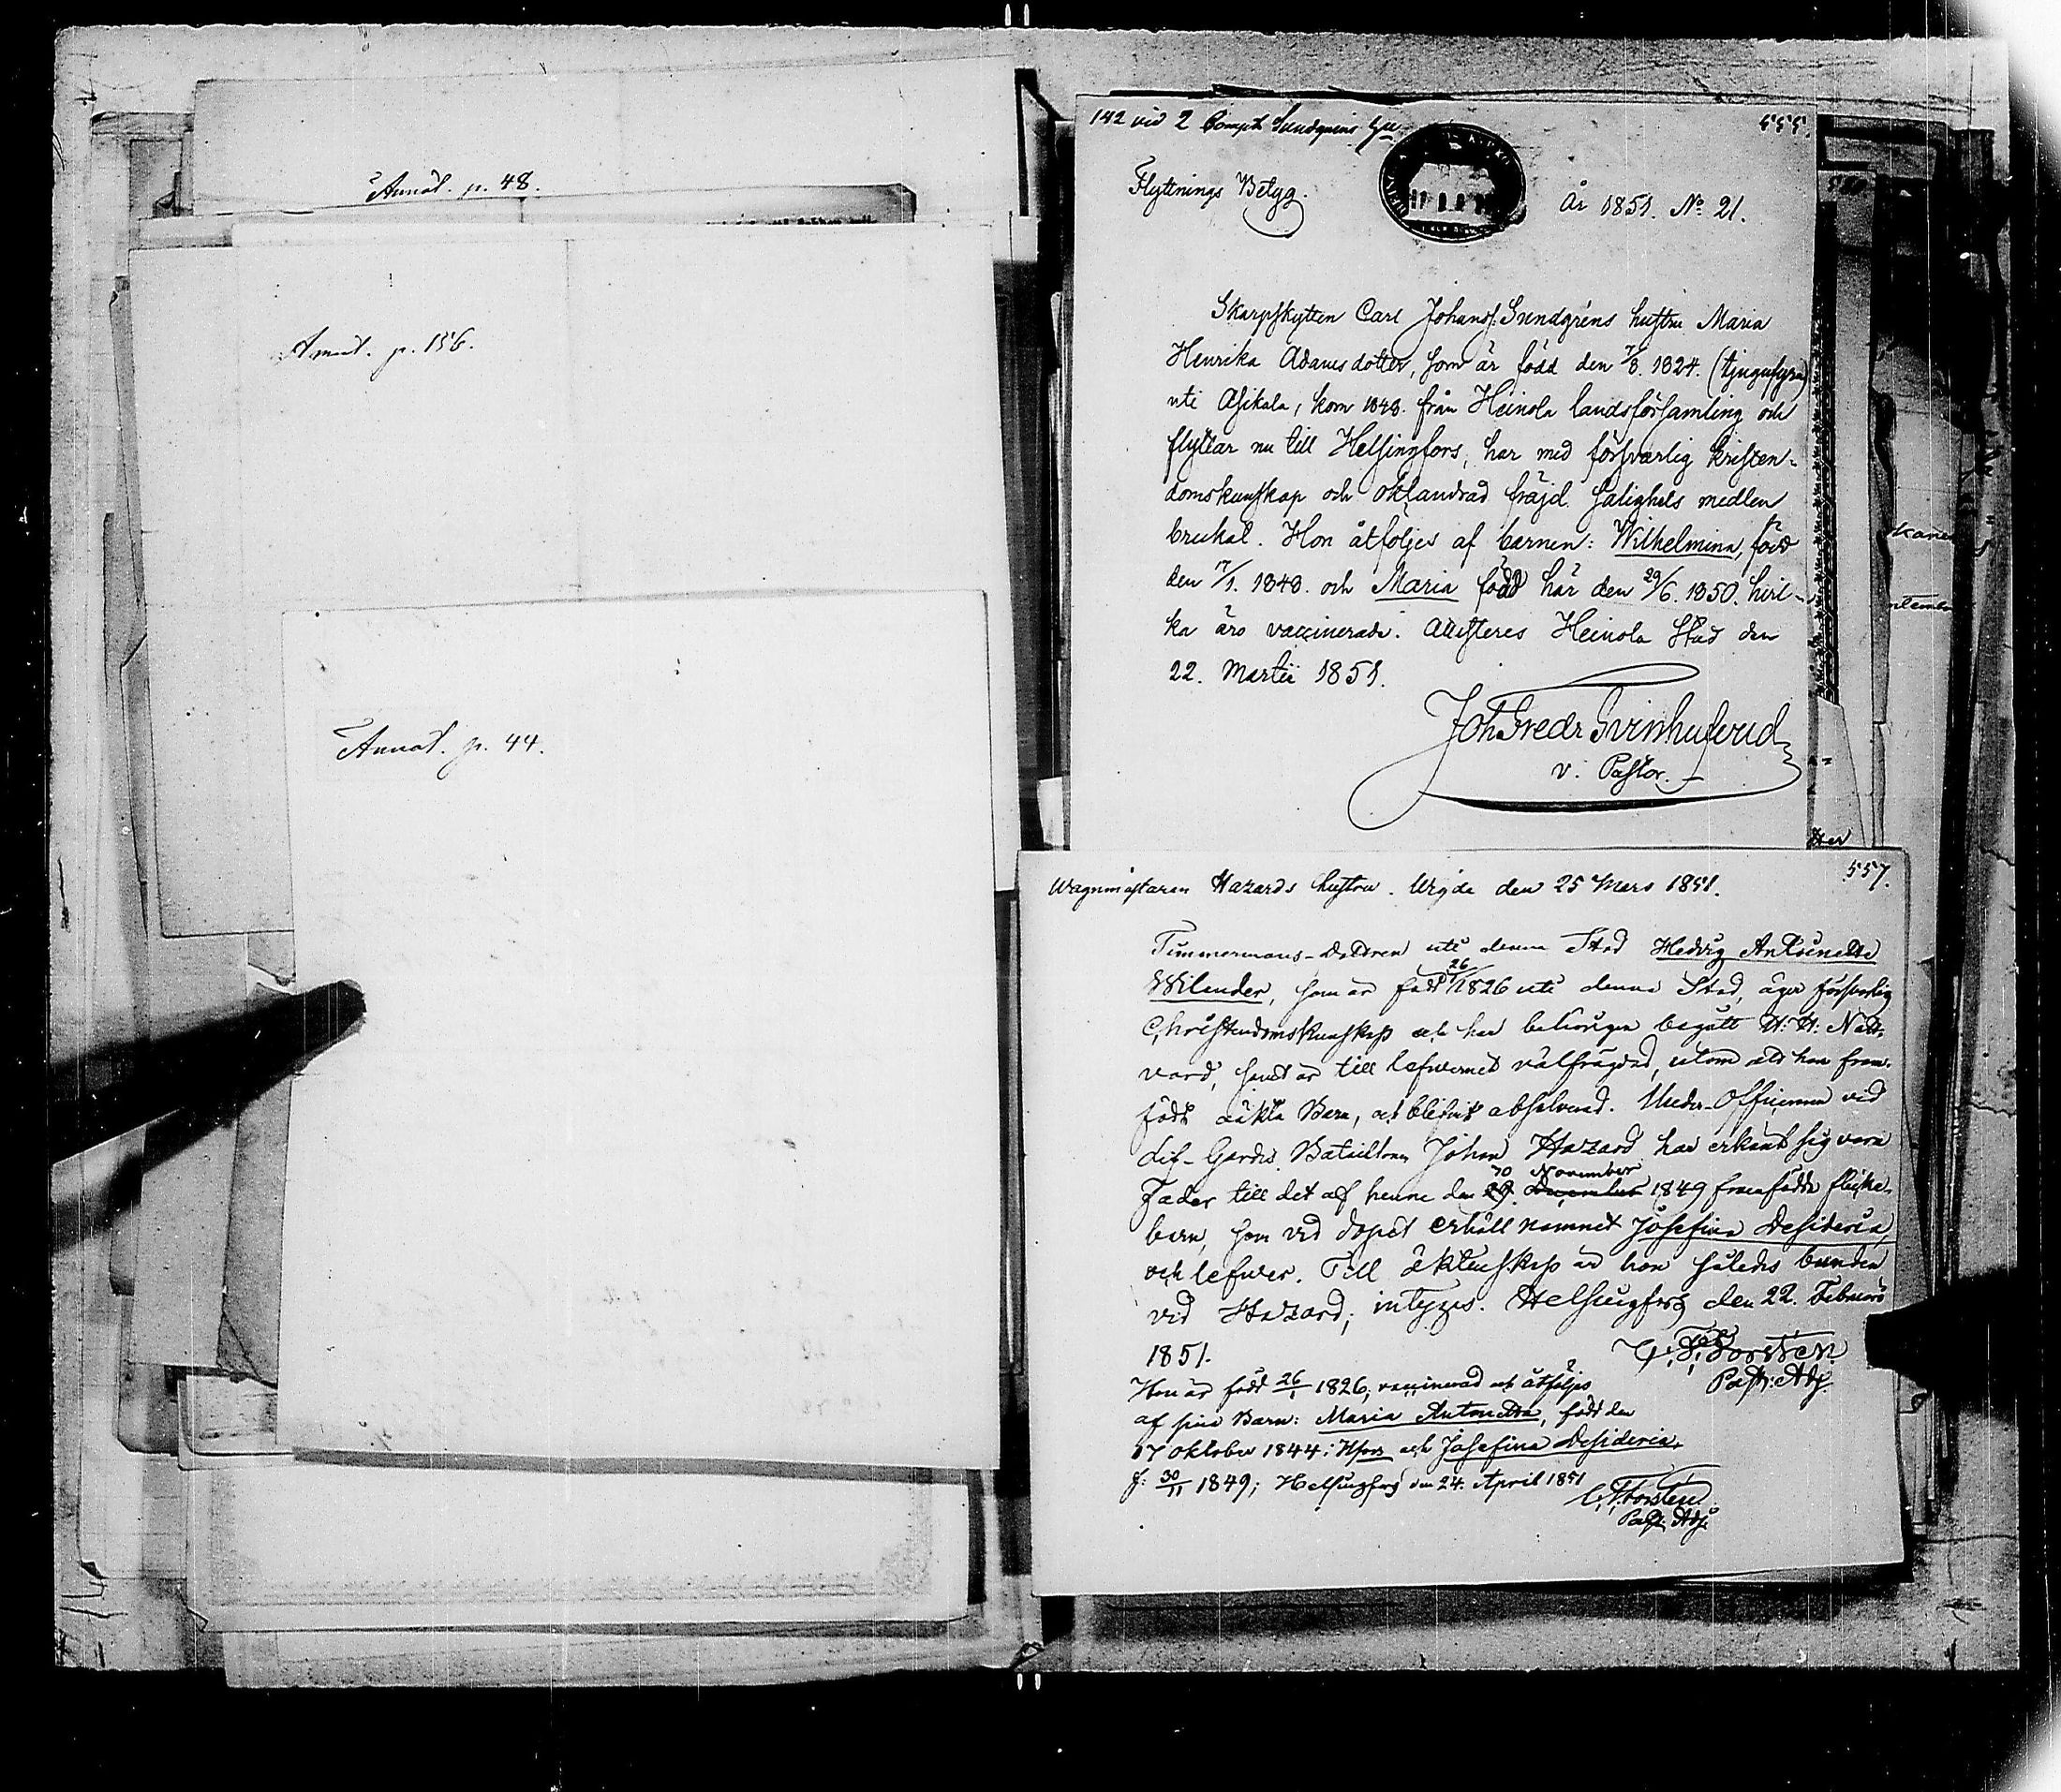 Annot. p. 48.
Annot. p. 156.
Annot. p. 44.
142 vid 2 Comp. Sundgrens hu
555.
Flyttnings Betyg.
År 1851. No 21.
Skarpskytten Carl Johanss: Sundgréns hustru Maria
Henrika Adamsdotter, som är född den 7/8. 1824. (tjugufyra)
uti Asikala, kom 1848. från Heinola landsförsamling och
flyttar nu till Helsingfors, har med försvarlig kristen-
domskunskap och oklandrad fräjd salighets medlen
brukat. Hon åtföljes af barnen: Wilhelmina, född
den 7/1. 1848. och Maria född här den 29/6. 1850. hvil-
ka äro vaccinerade. Attesteres Heinola Stad den
22. Martii 1851.
Joh Fredr Svinhufvud
v. Pastor.
557.
Wagnmästaren Hazards hustru. Wigde den 25 Mars 1851.
Timmermans-Dottren uti denna Stad Hedvig Antoinette
Wilander, som är född 26/1 1826 uti denna Stad, äger försvarlig
Christendomskunskap och har behörigen begått H: H: Natt-
vard, samt är till lefvernet välfrägdad, utom att hon fram-
födt oäkta Barn, och blifvit absolverad. Under-Officeren vid
Lif-Gardes Bataillon Johan Hazard har erkänt sig vara
Fader till det af henne den 29. December 30 November 1849 framfödda flicke-
barn, som vid dopet erhöll namnet Josefina Desideria,
och lefver. Till äktenskap är hon således bunden
vid Hazard; intygas. Helsingfors den 22. Februari
1851.
Thorstén
Past: Adj.
Hon är född 26/1 1826, vaccinerad och åtföljes
af sina Barn: Maria Antonetta, född den
17 Oktober 1844 i Hfors och Josefina Desideria,
f: 30/11 1849; Helsingfors den 24. April 1851
Thorstén
Past. Adj: